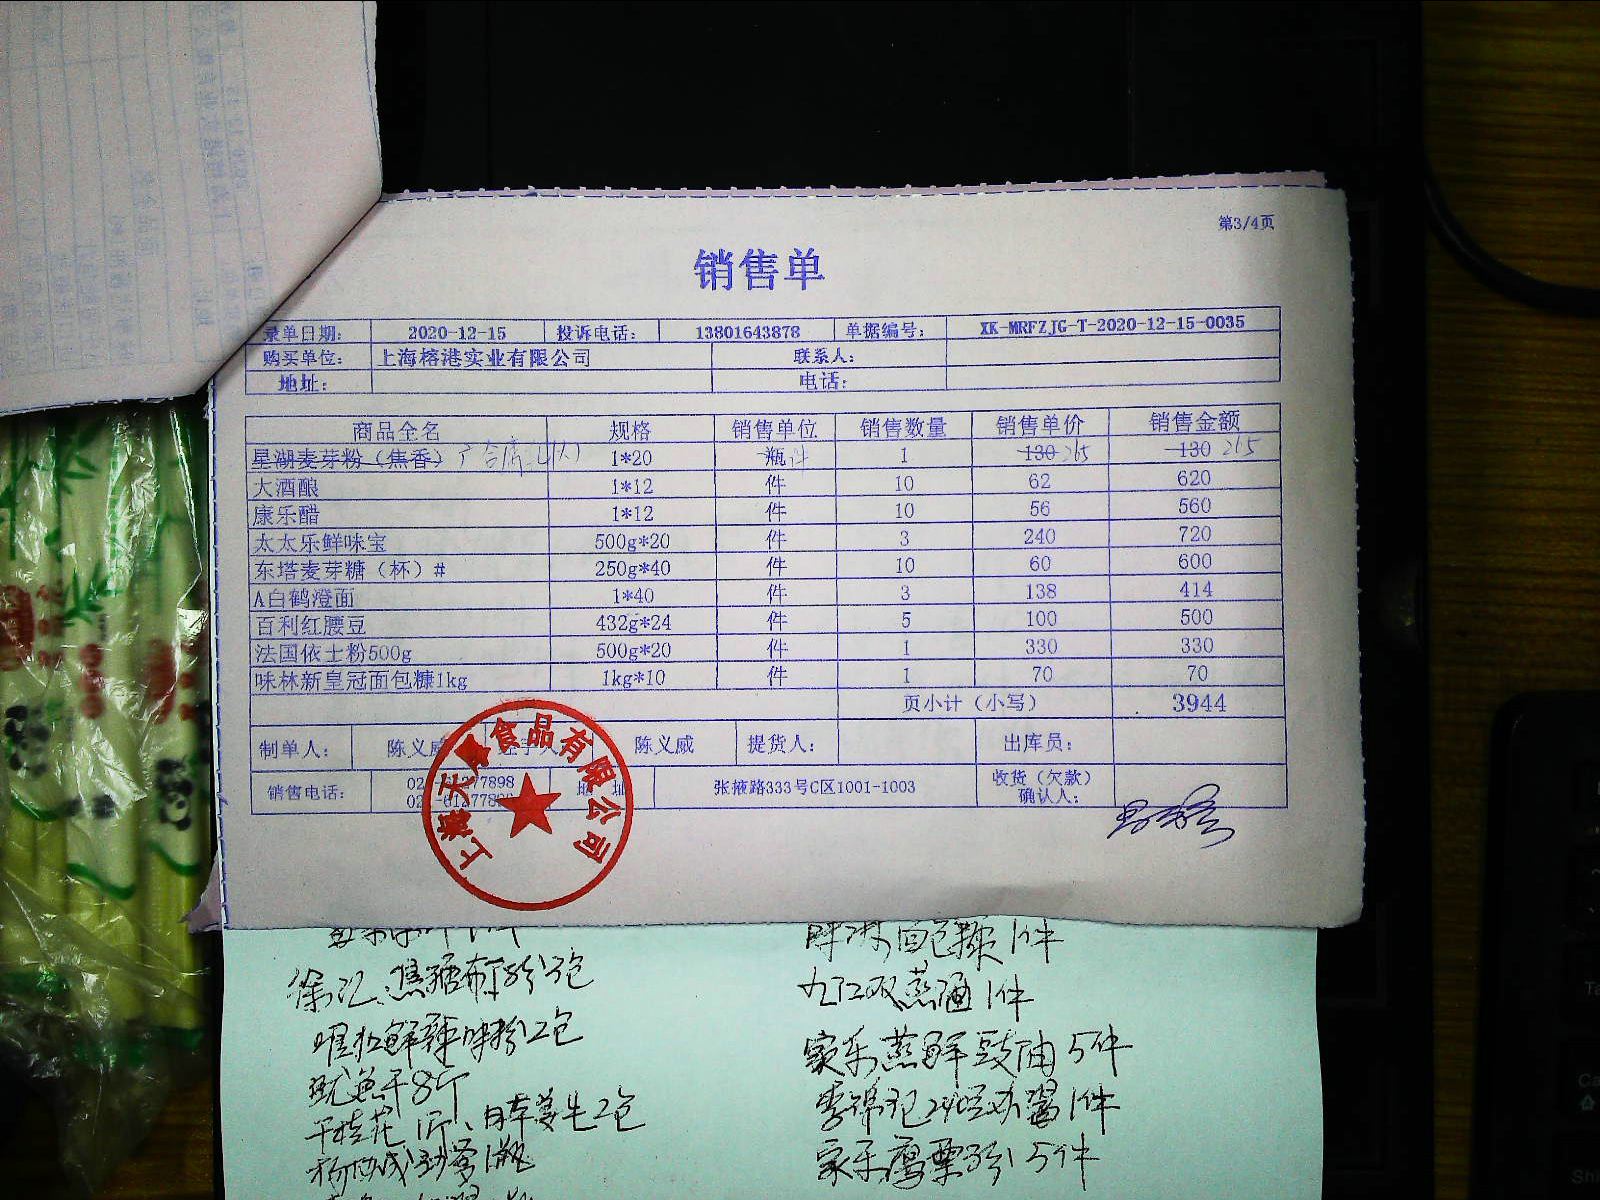 第3/4页
销售单
录单日期: 2020-12-15 投诉电话: 13801643878 单据编号: XK-MRFZJG-T-2020-12-15-0035
购买单位: 上海榕港实业有限公司 联系人:
地址: 电话:
商品全名 规格 销售单位 销售数量 销售单价 销售金额
星湖麦芽粉（焦香） 1*20 瓶件 1 130 265 130 265
大酒酿 1*12 件 10 62 620
康乐醋 1*12 件 10 56 560
太太乐鲜味宝 500g*20 件 3 240 720
东塔麦芽糖（杯）# 250g*40 件 10 60 600
A白鹤澄面 1*40 件 3 138 414
百利红腰豆 432g*24 件 5 100 500
法国依士粉500g 500g*20 件 1 330 330
味林新皇冠面包糠1kg 1kg*10 件 1 70 70
页小计（小写） 3944
制单人: 陈义威 陈义威 提货人: 出库员:
销售电话: -61277898 地址 张掖路333号C区1001-1003 收货（欠款）
确认人:
食品有限公司
徐汇 焦糖布丁粉3包
鲜辣味粉2包
鱿鱼干8斤
干桂花1斤、
味淋面包糠1件
九江双蒸酒1件
家乐蒸鲜豉油5件
家乐鹰粟粉5件